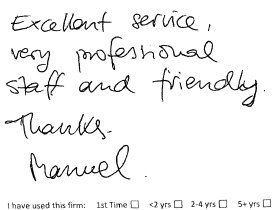 Excellent service,
very professional
staff and friendly.
Thanks.
Manuel.
I have used this firm: 1st Time ☐ <2 yrs ☐ 2-4 yrs ☐ 5+ yrs ☐